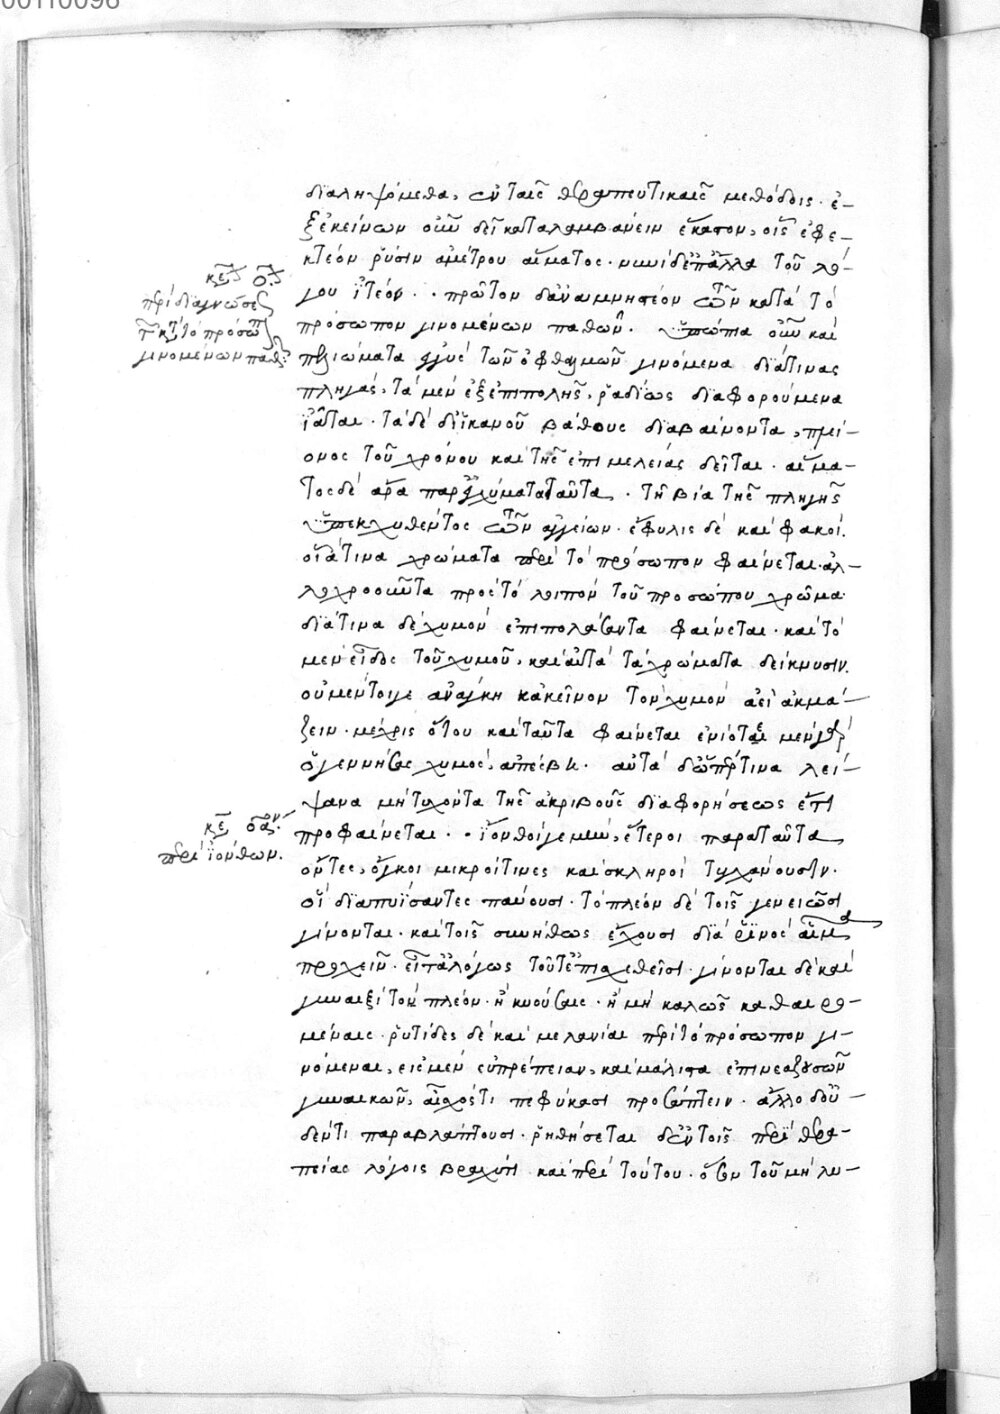 00110098
διαληψόμεθα, ἐν ταῖς θεραπευτικαῖς μεθόδοις. ἐ-
ξ ἐκείνων οὖν δεῖ καταλαμβάνειν ἕκαστον, οἷς ἐφε-
κτέον ῥύσιν ἀμέτρου αἵματος. νυνὶ δ' ἐπ' ἄλλα τοῦ λό-
γου ἰτέον. πρῶτον δ' ἀναμνηστέον τῶν κατὰ τὸ
πρόσωπον γινομένων παθῶν. ὑπώπια οὖν καὶ
κεφ. οδ.
περὶ διαγνώσεως
τῶν κατὰ τὸ πρόσωπον
γινομένων παθῶν.
πελιώματα ἐγγὺς τῶν ὀφθαλμῶν γινόμενα διά τινας
πληγάς, τὰ μὲν ἐξ ἐπιπολῆς, ῥαδίως διαφορούμενα
ἰᾶται. τὰ δὲ δι' ἱκανοῦ βάθους διαβαίνοντα, πλεί-
ονος τοῦ χρόνου καὶ τῆς ἐπιμελείας δεῖται. αἵμα-
τος δὲ ἄρα παρεγχύματα ταῦτα, τῇ βίᾳ τῆς πληγῆς
ὑπεκχυθέντος τῶν ἀγγείων. ἔφηλις δὲ καὶ φακοί.
οἷα τινα χρώματα περὶ τὸ πρόσωπον φαίνεται. ἀλ-
λοχροοῦντα πρὸς τὸ λοιπὸν τοῦ προσώπου χρῶμα.
διά τινα δὲ χυμὸν ἐπιπολάζοντα φαίνεται. καὶ τὸ
μὲν εἶδος τοῦ χυμοῦ, καὶ αὐτὰ τὰ χρώματα δείκνυσιν.
οὐ μέντοιγε ἀνάγκη κἀκεῖνον τὸν χυμὸν ἀεὶ ἀκμά-
ζειν. μέχρις ὅτου καὶ ταῦτα φαίνεται ἐνίοτε μὲν γὰρ
ὁ γεννήσας χυμὸς, ἀπέσβη. αὐτὰ δ' ὥσπερ τινα λεί-
ψανα μὴ τυχόντα τῆς ἀκριβοῦς διαφορήσεως ἔτι
προφαίνεται. ἴονθοι γε μὴν, ἕτεροι παρὰ ταῦτα
κεφ. οεον.
περὶ ἰόνθων.
ὄντες, ὄγκοι μικροί τινες καὶ σκληροὶ τυγχάνουσιν.
οἳ διαπυΐσαντες παύουσι. τὸ πλέον δὲ τοῖς γενειῶσι
γίνονται. καὶ τοῖς συνήθως ἔχουσι διὰ ῥινὸς αἷμα
προχεῖν. εἶτ' ἀλόγως τοῦτ' ἐπισχεθεῖσι. γίνονται δὲ καὶ
γυναιξὶ τὸ πλέον. ἢ κυούσαις. ἢ μὴ καλῶς καθαιρο-
μέναις. ῥυτίδες δὲ καὶ μελανίαι περὶ τὸ πρόσωπον γι-
νόμεναι, εἰς μὲν εὐπρέπειαν, καὶ μάλιστα ἐπὶ νεαζουσῶν
γυναικῶν, αἶσχός τι πεφύκασι προσάπτειν. ἄλλο δ' οὐ-
δέν τι παραβλάπτουσι. ῥηθήσεται δ' ἐν τοῖς περὶ θερα-
πείας λόγοις βραχύ τι καὶ περὶ τούτου. ὅσον τοῦ μὴ λυ-